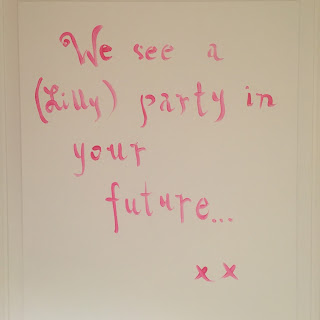 We see a
(Lilly) party in
your
future...
x x